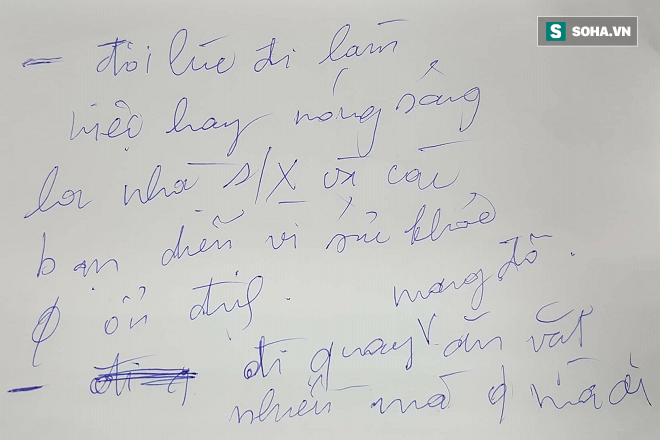 SOHA.VN
- đôi lúc đi làm
việc hay nóng sống
la nhà s/x và các
bạn diễn vì sức khỏe
ϕ ổn định. mong đõ.
- đi quay ăn vặt
nhiều mà ϕ